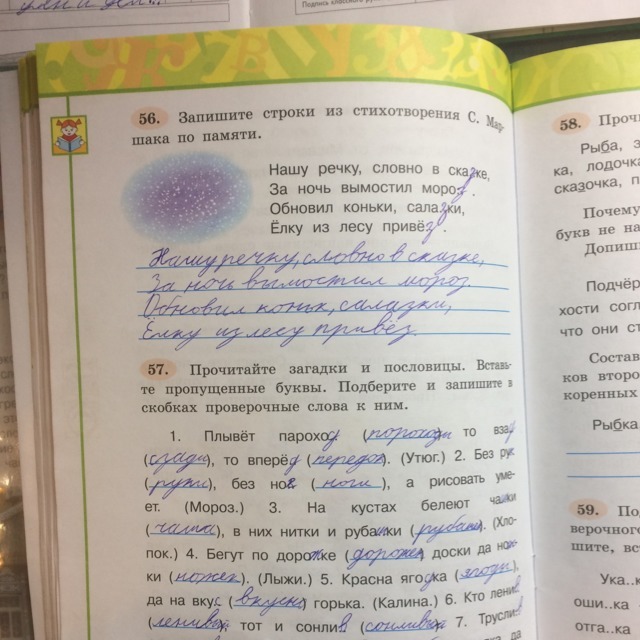 Подпись классного ру
56. Запишите строки из стихотворения С. Мар-
шака по памяти.
Нашу речку, словно в сказке,
За ночь вымостил мороз.
Обновил коньки, салазки,
Ёлку из лесу привёз.
Нашу речку, словно в сказке,
За ночь вымостил мороз
Обновил коньк, салазки,
Ёлку из лесу привёз.
57. Прочитайте загадки и пословицы. Вставь-
те пропущенные буквы. Подберите и запишите в
скобках проверочные слова к ним.
1. Плывёт пароход () то взад
(сзади), то вперёд (). (Утюг.) 2. Без рук
(руки), без ног (ноги), а рисовать уме-
ет. (Мороз.) 3. На кустах белеют чашки
(чаша), в них нитки и рубашки (). (Хло-
пок.) 4. Бегут по дорожке (дорожек) доски да нож-
ки (ножек). (Лыжи.) 5. Красна ягодка (ягоды),
да на вкус (вкусна) горька. (Калина.) 6. Кто ленив
() тот и сонлив () 7. Труслив
58. Проч
Рыба, з
ка, лодочка
сказочка, п
Почему
букв не на
Допиш
Подчёр
хости согл
что они ст
Состав
ков второ
коренных
Рыбка,
59. По
верочного
шите, вс
Ука..к
оши..ка
отга..ка